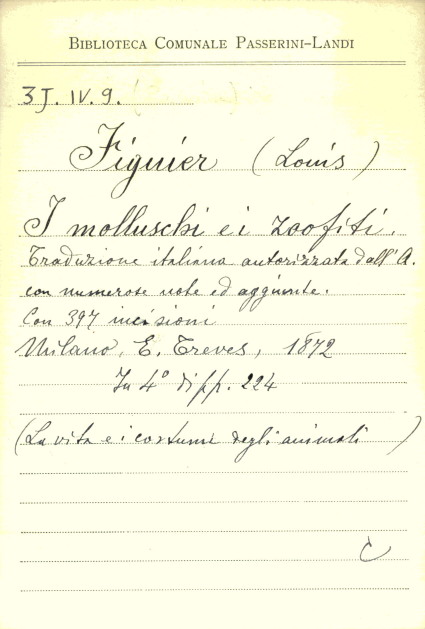 BIBLIOTECA COMUNALE PASSERINI-LANDI
3J. IV. 9.
Figuier (Louis)
I molluschi e i zoofiti.
Traduzione italiana autorizzata dall'A.
con numerose note ed aggiunte.
Con 397 incisioni
Milano, E. Treves, 1872
In 4° di pp. 224
(La vita e i costumi degli animali)
C